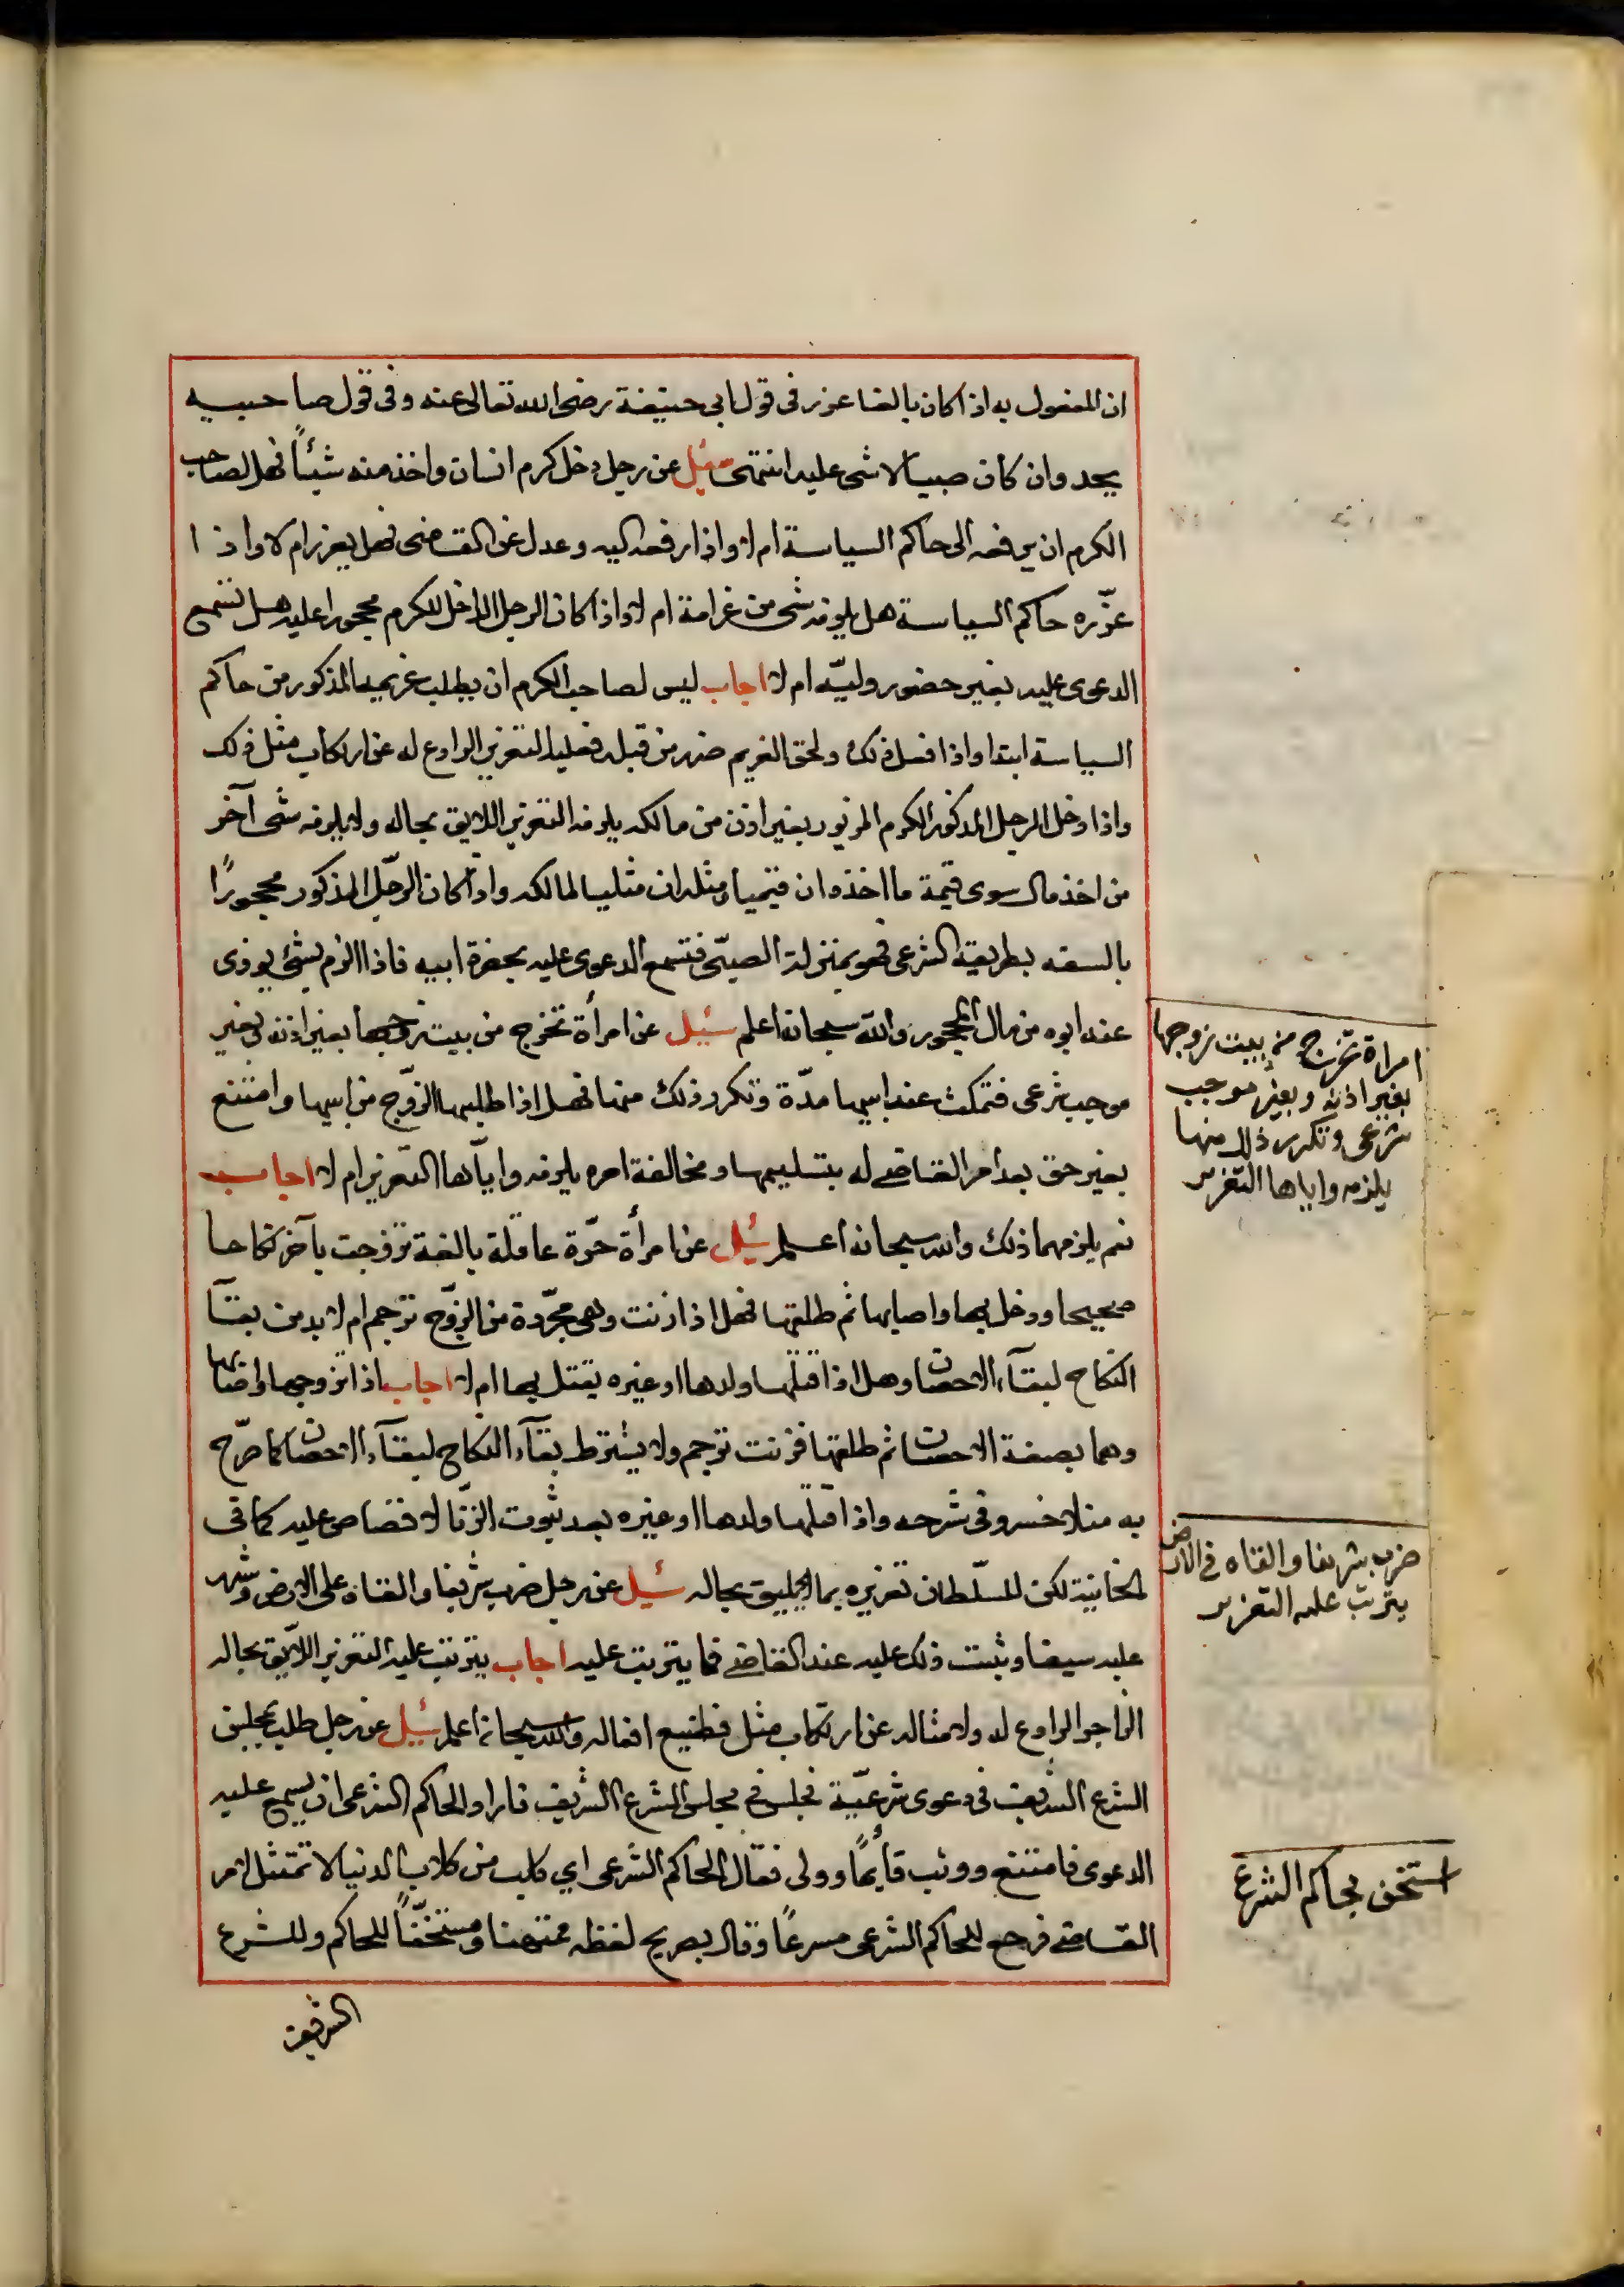 ان المفعول به اذا كان بالغا عزر فى قول ابى حنيفة رضى الله تعالى عنه وفى قول صاحبيه
يحد وان كان صبيا لا شى عليه انتهى سئل عن رجل دخل كرم انسان واخذ منه شيئًا فهل لصاحب
الكرم ان يرفعه الى حاكم السياسة ام لا واذا رفعه اليه وعدل عن القاضى فهل يعزر ام لا واذا
عزّره حاكم السياسة هل يلزمه شى من غرامة ام لا واذا كان الرجل الداخل للكرم محجورا عليه هل تسمع
الدعوى عليه بغير حضور وليّه ام لا اجاب ليس لصاحب الكرم ان يطلب غريمه المذكور من حاكم
السياسة ابتدا واذا فعل ذلك ولحق الغريم ضرر من قبله فعليه التعزير الرادع له عن ارتكاب مثل ذلك
واذا دخل الرجل المذكور الكرم المزبور بغير اذن من مالكه يلزمه التعزير اللايق بحاله ولا يلزمه شى آخر
من اخذ مال سوى قيمة ما اخذه ان قيميا ومثله ان مثليا لمالكه واذا كان الرّجل المذكور محجورًا
بالسفه بطريقه الشرعى فهو بمنزلة الصبىّ فتسمع الدعوى عليه بحضرة ابيه فاذا الزم بشئ يودى
عنه ابوه من مال المحجور والله سبحانه اعلم سئيل عن امرأة تخرج من بيت زوجها بغير اذنه فى غير
موجب شرعى فتمكث عند ابيها مدّة وتكرر ذلك منها فهل اذا طلبها الزّوج من ابيها وامتنع
بغير حق بعد امر القاضى له بتسليمها ومخالفة امره يلزمه وايّاها التّعزير ام لا اجاب
نعم يلزمهما ذلك والله سبحانه اعلم سُئل عن امرأة حرّة عاقلة بالغة تزوجت بآخر نكاحا
صحيحا ودخل بها واصابها ثم طلقها فهل اذا زنت وهى مجرّدة من الزّوج ترجم ام لا بد من بقآ
النكاح لبقآء الاحصان وهل اذا قتلها ولدها او غيره يقتل بها ام لا اجاب اذا تزوجها واصابها
وهما بصفة الاحصان ثم طلقها فزنت ترجم ولا يشترط بقآء النكاح لبقآء الاحصان كما صرّح
به منلا خسرو فى شرحه واذا قتلها ولدها او غيره بعد ثبوت الزّنا لا قصاص عليه كما فى
الخانية لكن للسّلطان تعزيره بما يليق بحاله سُئيل عن رجل ضرب شريفا والقاه على الارض وشهر
عليه سيفا وثبت ذلك عليه عند القاضى فما يترتب عليه اجاب يترتب عليه التعزير اللّايق بحاله
الزاجر الرادع له ولامثاله عن ارتكاب مثل فظيع افعاله والله سبحانه اعلم سُئيل عن رجل طلب لمجلس
الشرع الشريف فى دعوى شرعيّة فجلس فى مجلس الشرع الشريف فاراد الحاكم الشرعى ان يسمع عليه
الدعوى فامتنع ووثب قايمًا وولى فقال الحاكم الشرعى اي كليب من كلاب الدنيا لا تمتثل لامر
القاضى فرجع للحاكم الشرعى مسرعًا وقال بصريح لفظه ممتهنا ومستخفّاً للحاكم وللشرع
الشريف
امراة تخرج من بيت زوجها
بغير اذنه وبغير موجب
شرعى وتكرر ذلك منها
يلزمه واياها التعزير
ضرب شريفا والقاه فى الارض
يترتب عليه التعزير
استخف بحاكم الشرع